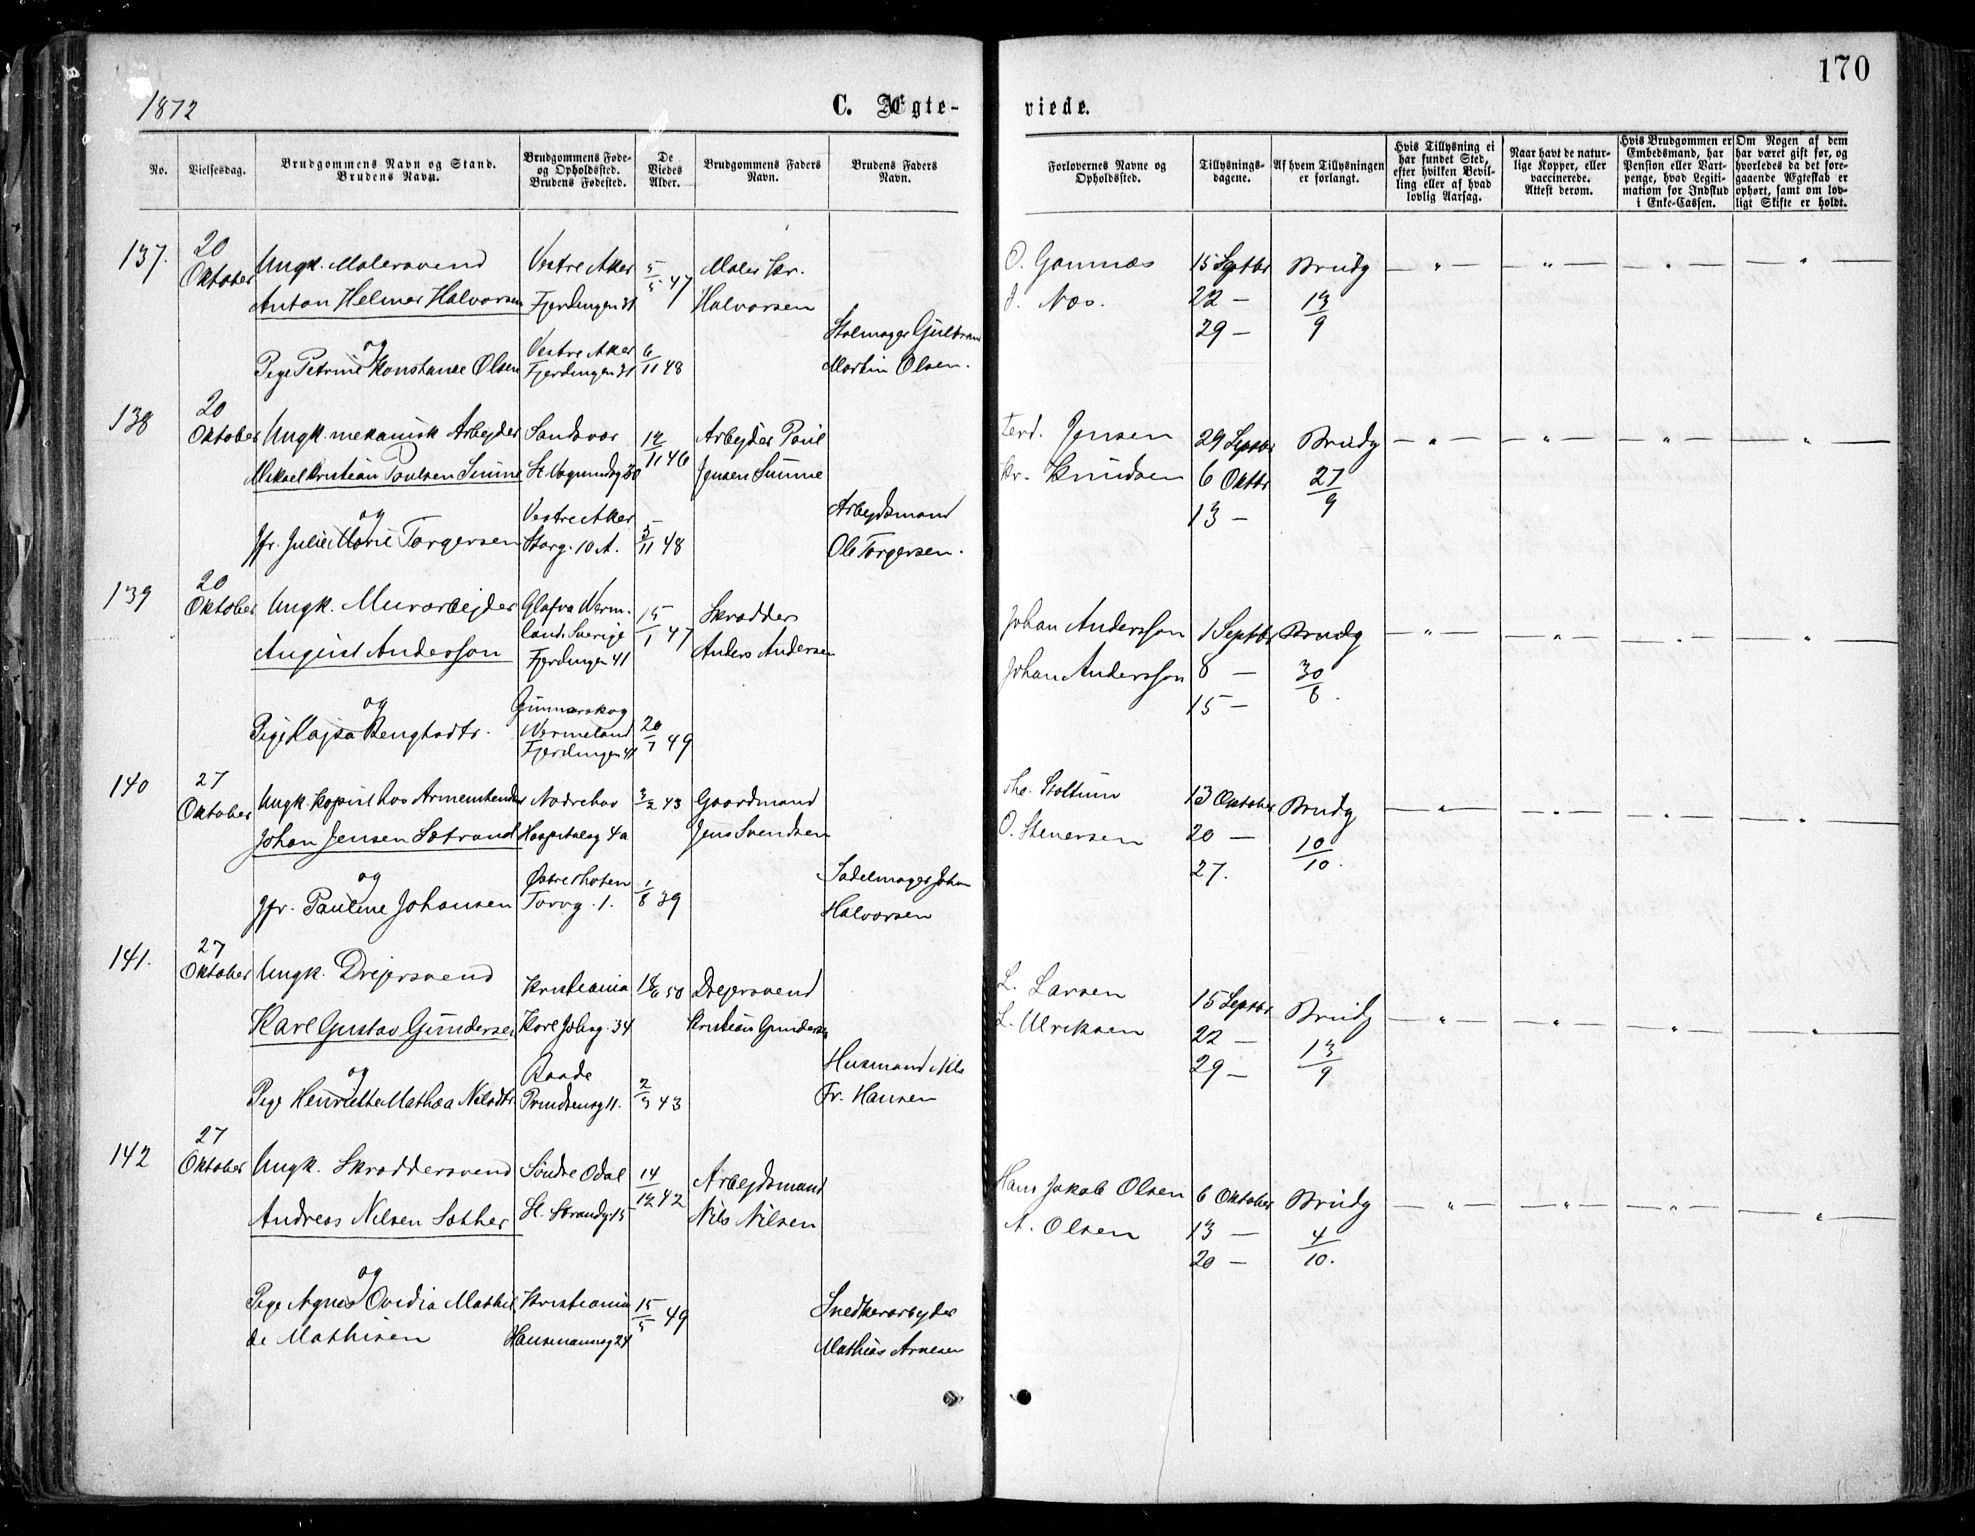 170
1872
C. Ægte-
viede.
No.
Vielsesdag.
Brudgommens Navn og Stand.
Brudens Navn.
Brudgommens Føde-
og Opholdssted.
Brudens Fødested.
De
Viedes
Alder.
Brudgommens Faders
Navn.
Brudens Faders
Navn.
Forlovernes Navne og
Opholdssted.
Tillysnings-
dagene.
Af hvem Tillysningen
er forlangt.
Hvis Tillysning ei
har fundet Sted,
efter hvilken Bevil-
ling eller af hvad
lovlig Aarsag.
Naar havt de natur-
lige Kopper, eller
vaccinerede.
Attest derom.
Hvis Brudgommen er
Embedsmand, har
Pension eller Vart-
penge, hvad Legiti-
mation for Indskud
i Enke-Cassen.
Om Nogen af dem
har været gift før, og
hvorledes da det fore-
gaaende Ægteskab er
ophørt, samt om lov-
ligt Skifte er holdt.
137.
20
Oktober
Ungk. Malersvend
Anton Helmer Halvorsen
og
Pige Petrine Konstanse Olsen
Vestre Aker
Fjerdingen 31
Vestre Aker
Fjerdingen 31
5/5 47
6/11 48
Maler Kr.
Halvorsen
Stolmager Gulbran
Martin Olsen.
O. Gamnæs
J. Næs.
15 Septbr
22 —
29 —
Brudg
13/9
138
20
Oktober
Ungk. mekanisk Arbejder
Mikael Kristian Poulsen Sunne
og
Jfr. Julie Marie Torgersen
Sandsvær
St. Vognmdsg 30
Vestre Aker
Storg. 10 A.
12/11 46
3/11 48
Arbejder Poul
Jensen Sunne
Arbejdsmand
Ole Torgersen.
Ferd. Jensen
Kr. Knudsen
29 Septbr
6 Oktbr
13 —
Brudg
27/9
139
20
Oktober
Ungk. Murarbejder
August Andersson
og
Pige Kajsa Bengtsdtr.
Glafva Verm-
land. Sverige
Fjerdingen 41
Gunnarskog
Vermeland
Fjerdingen 41
15/1 47
20/7 49
Skrædder
Anders Andersen
Johan Andersson
Johan Andersson
1 Septbr
8 —
15 —
Brudg
30/8.
140
27
Oktober
Ungk. Kopist hos
Johan Jensen Sætrand
og
Jfr. Pauline Johansen
Noderhov
Hospitalsg 4a
Østre
Torvg. 1.
3/2 43
1/8 39
Gaardmand
Jens Svendsen
Sadelmager Johan
Halvorsen
O. Stenersen
13 Oktober
20 —
27.
Brudg
10/10.
141.
27
Oktober
Ungk. Drejersvend
Karl Gustav Gundersen
og
Pige Henriette Mathea Nilsdtr.
Kristiania
Karl Johsg. 34
Raade
Prindsensg 11.
18/6 50
2/3 43
Drejersvend
Kristian Gundersen
Husmand Nils
Fr. Hansen
L. Larsen
L. Ulriksen
15 Septbr
22 —
29 —
Brudg
13/9
142
27
Oktober
Ungk. Skræddersvend
Andreas Nilsen Sæther
og
Pige Agnes Ovidia Mathil
de Mathisen
Søndre Odal
St. Strandg. 15
Kristiania
Hausmannsg 24
14/12 42
15/5 49
Arbejdsmand
Nils Nilsen
Snedkerarbejder
Mathias Arnesen
Hans Jakob Olsen
A. Olsen
6 Oktober
13 —
20 —
Brudg
4/10.